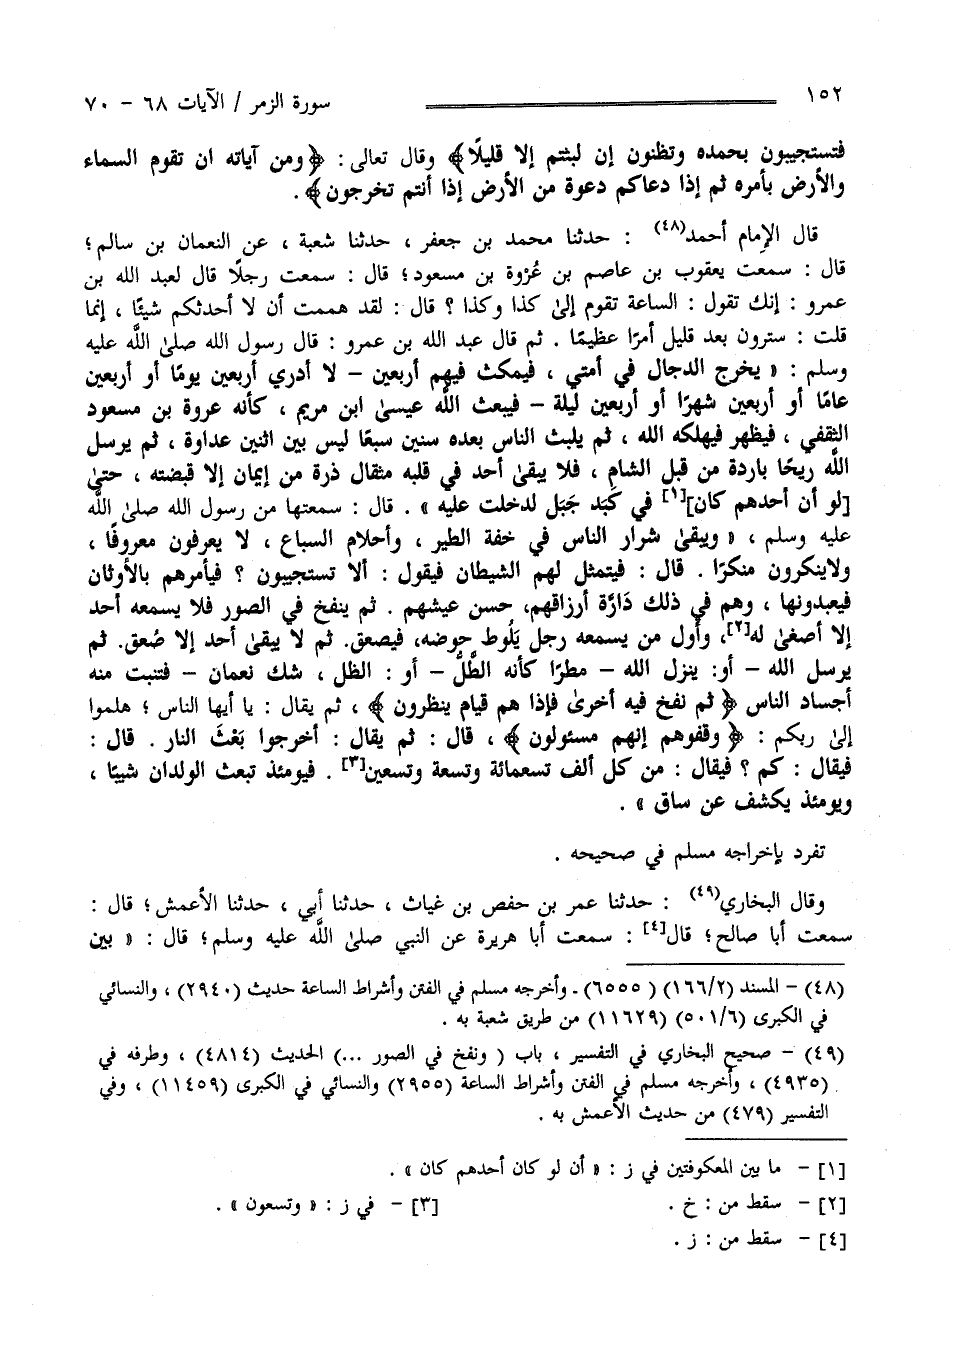 ١٥٢ سورة الزمر / الآيات ٦٨ - ٧٠
فتستجيبون بحمده وتظنون إن لبثتم إلا قليلًا﴾ وقال تعالى : ﴿ومن آياته ان تقوم السماء
والأرض بأمره ثم إذا دعاكم دعوة من الأرض إذا أنتم تخرجون﴾ .
قال الإمام أحمد(٤٨) : حدثنا محمد بن جعفر ، حدثنا شعبة ، عن النعمان بن سالم؛
قال : سمعت يعقوب بن عاصم بن عُرْوة بن مسعود؛ قال : سمعت رجلًا قال لعبد الله بن
عمرو : إنك تقول : الساعة تقوم إلىٰ كذا وكذا ؟ قال : لقد هممت أن لا أحدثكم شيئًا ، إنما
قلت : سترون بعد قليل أمرًا عظيمًا . ثم قال عبد الله بن عمرو : قال رسول الله صلىٰ اللَّه عليه
وسلم : « يخرج الدجال في أمتي ، فيمكث فيهم أربعين – لا أدري أربعين يومًا أو أربعين
عامًا أو أربعين شهرًا أو أربعين ليلة – فيبعث اللَّه عيسىٰ ابن مريم ، كأنه عروة بن مسعود
الثقفي ، فيظهر فيهلكه الله ، ثم يلبث الناس بعده سنين سبعًا ليس بين اثنين عداوة ، ثم يرسل
اللَّه ريحًا باردة من قبل الشام ، فلا يبقىٰ أحد في قلبه مثقال ذرة من إيمان إلا قبضته ، حتىٰ
[لو أن أحدهم كان][١] في كَبَد جَبَل لدخلت عليه » . قال : سمعتها من رسول الله صلىٰ اللَّه
عليه وسلم ، « ويبقىٰ شرار الناس في خفة الطير ، وأحلام السباع ، لا يعرفون معروفًا ،
ولاينكرون منكرًا . قال : فيتمثل لهم الشيطان فيقول : ألا تستجيبون ؟ فيأمرهم بالأوثان
فيعبدونها ، وهم في ذلك دَارَّة أرزاقهم، حسن عيشهم . ثم ينفخ في الصور فلا يسمعه أحد
إلا أصغىٰ له[٢]، وأول من يسمعه رجل يَلُوط حوضه، فيصعق. ثم لا يبقىٰ أحد إلا صُعق. ثم
يرسل الله – أو: ينزل الله – مطرًا كأنه الطَّلُّ – أو : الظل ، شك نعمان – فتنبت منه
أجساد الناس ﴿ ثم نفخ فيه أخرىٰ فإذا هم قيام ينظرون ﴾ ، ثم يقال : يا أيها الناس ؛ هلموا
إلىٰ ربكم : ﴿ وقفوهم إنهم مسئولون ﴾ ، قال : ثم يقال : أخرجوا بَعْثَ النار . قال :
فيقال : كم ؟ فيقال : من كل ألف تسعمائة وتسعة وتسعين[٣] . فيومئذ تبعث الولدان شيبًا ،
ويومئذ يكشف عن ساق » .
تفرد بإخراجه مسلم في صحيحه .
وقال البخاري(٤٩) : حدثنا عمر بن حفص بن غياث ، حدثنا أبي ، حدثنا الأعمش؛ قال :
سمعت أبا صالح؛ قال[٤] : سمعت أبا هريرة عن النبي صلىٰ اللَّه عليه وسلم؛ قال : « بين
(٤٨) – المسند (١٦٦/٢) (٦٥٥٥) . وأخرجه مسلم في الفتن وأشراط الساعة حديث (٢٩٤٠) ، والنسائي
في الكبرى (٥٠١/٦) (١١٦٢٩) من طريق شعبة به .
(٤٩) – صحيح البخاري في التفسير ، باب ( ونفخ في الصور ...) الحديث (٤٨١٤) ، وطرفه في
(٤٩٣٥) ، وأخرجه مسلم في الفتن وأشراط الساعة (٢٩٥٥) والنسائي في الكبرى (١١٤٥٩) ، وفي
التفسير (٤٧٩) من حديث الأعمش به .
[١] – ما بين المعكوفتين في ز : « أن لو كان أحدهم كان » .
[٢] – سقط من : خ . [٣] – في ز : « وتسعون » .
[٤] – سقط من : ز .